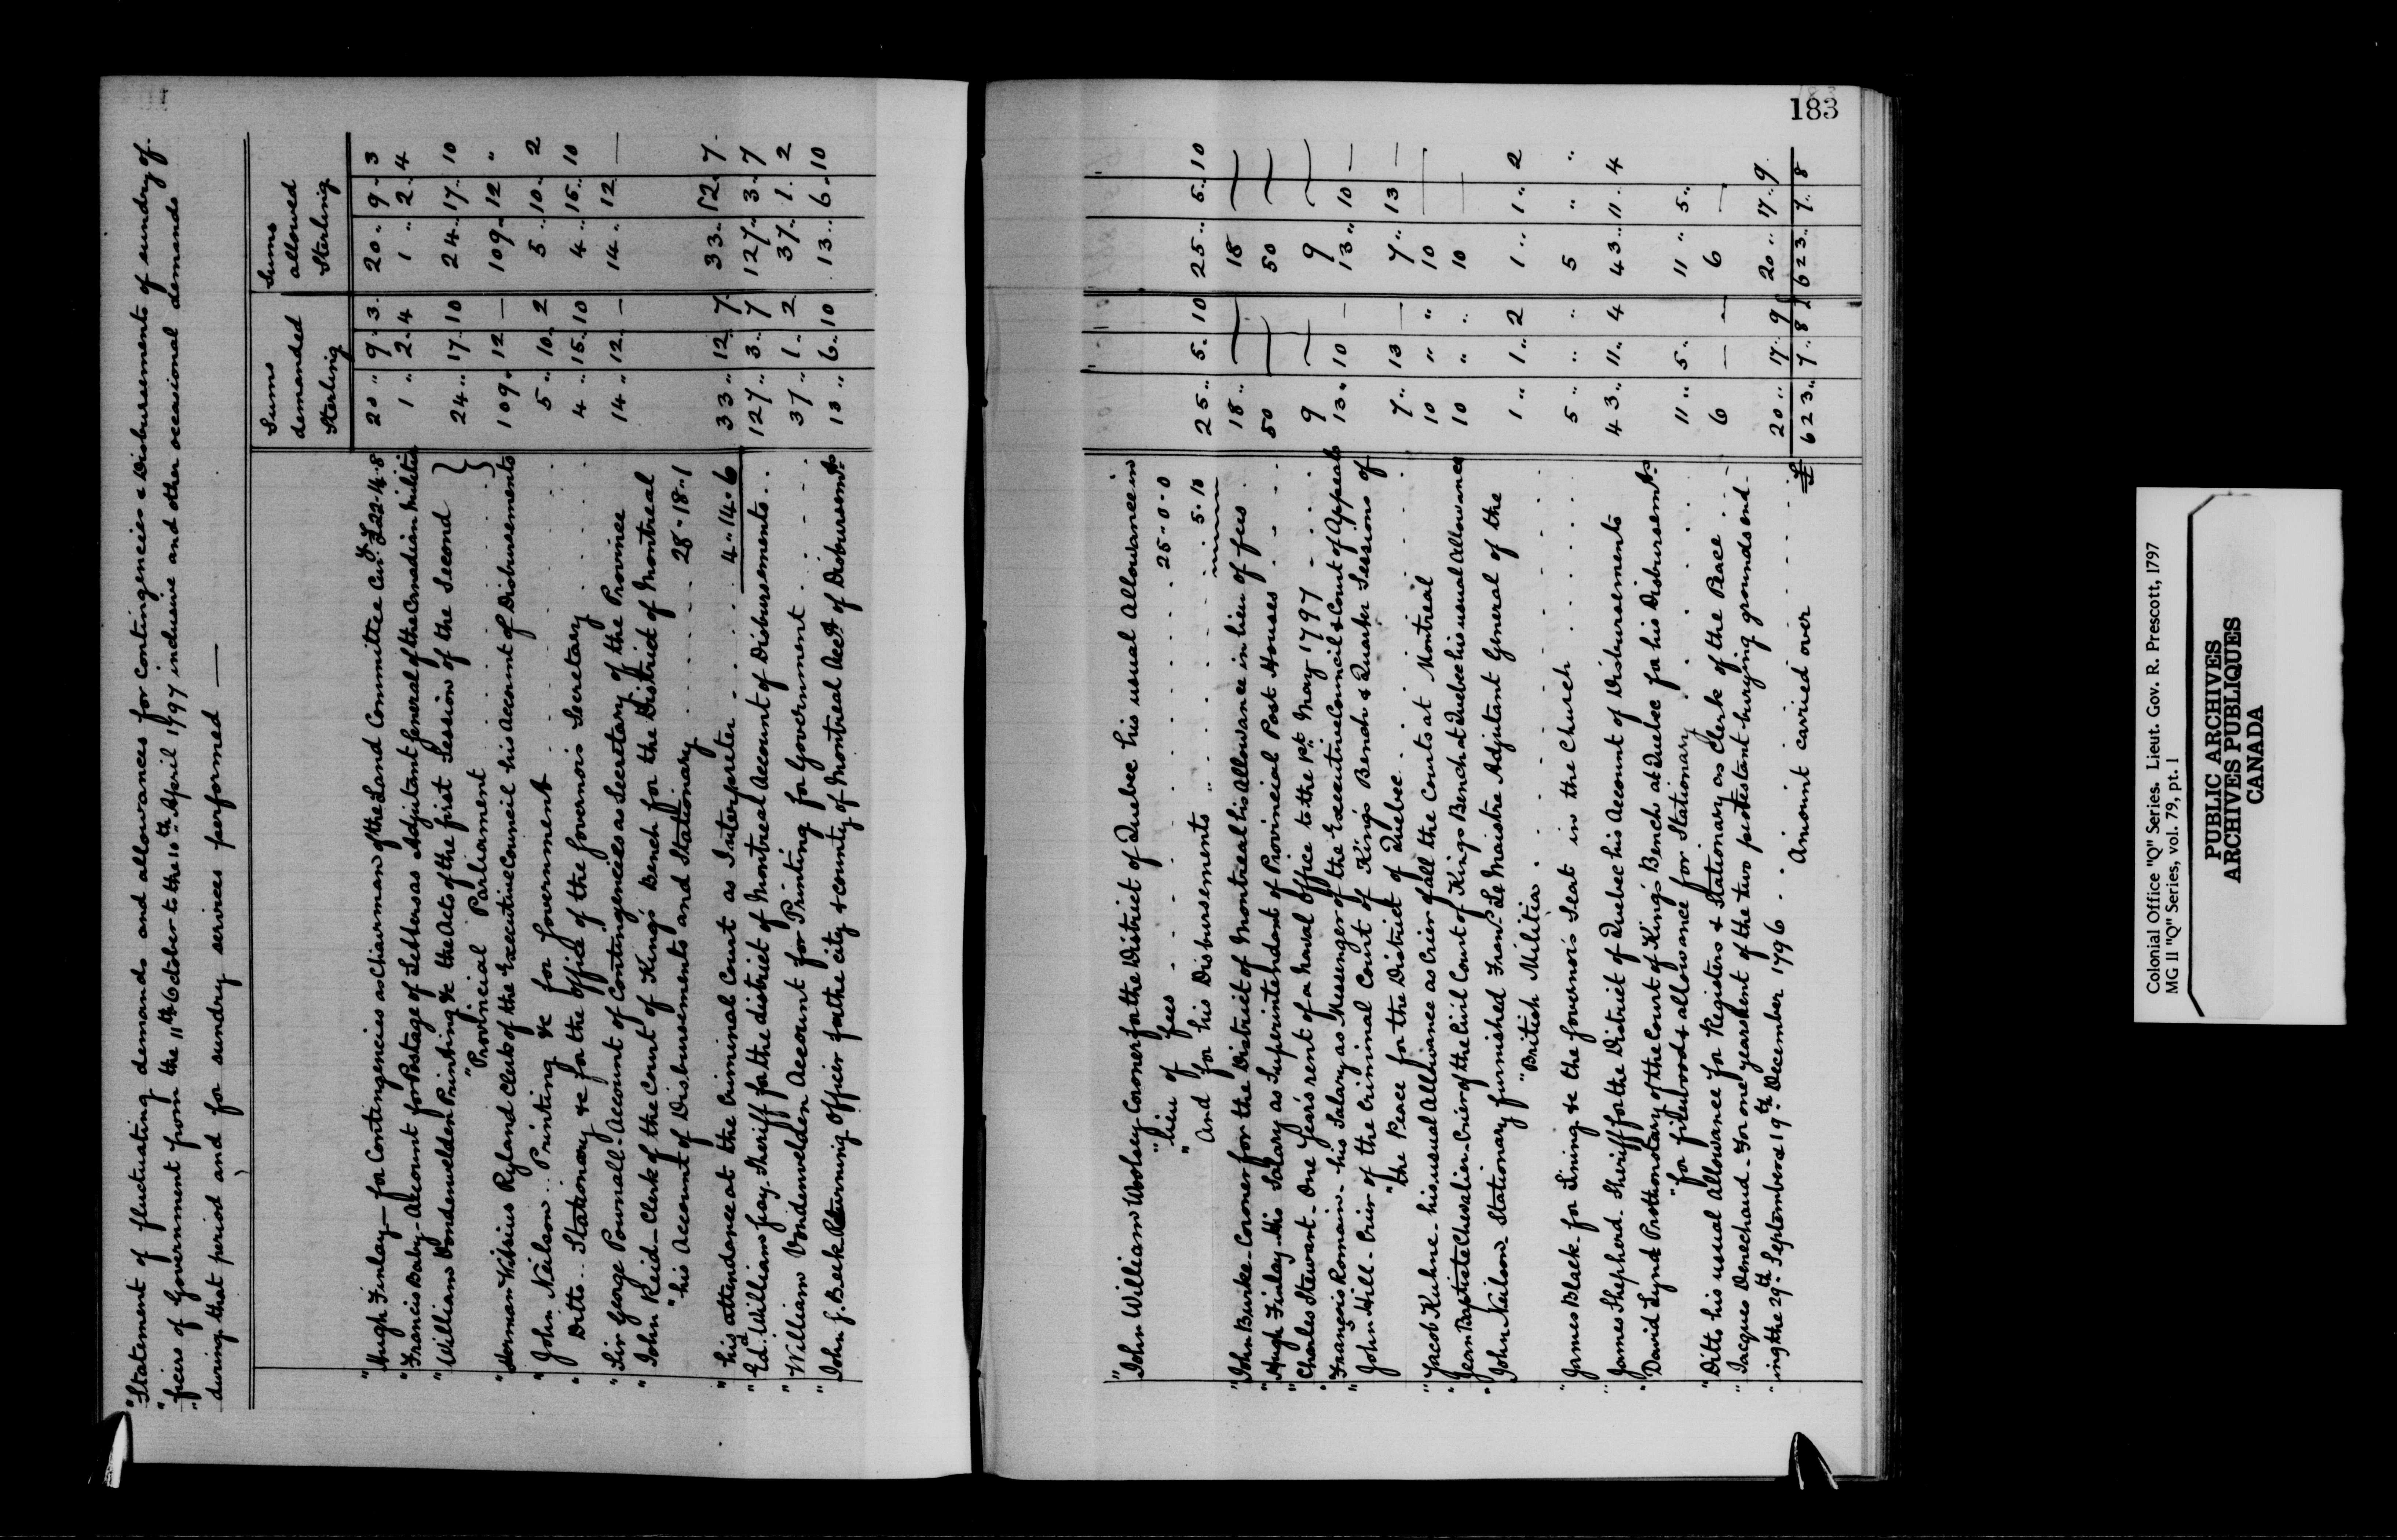 "Statement of fluctuating demands and allowances for contingencies & Disbursements of sundry of-
"ficers of Government from the 11th October to the 10th April 1797 inclusive and other occasional demands
"during that period and for sundry services performed —
Sums demanded Sterling
Sums allowed Sterling
"Hugh Finlay — for Contingencies as Chairman of the Land Committee Cur.y £22.4.8 20 .. 9 .. 3 20 .. 9 .. 3
"Francis Baby - Account for Postage of Letters as Adjutant General of the Canadian Militia 1 .. 2 .. 4 1 .. 2 .. 4
"William Vondenvelden Printing &c the Acts of the first Session of the Second
"Provincial Parliament 24 .. 17 .. 10 24 .. 17 .. 10
"Herman Witsius Ryland Clerk of the Executive Council his Account of Disbursements 109 .. 12 — 109 .. 12 "
"John Neilson .. Printing &c for Government 5 .. 10 .. 2 5 .. 10 .. 2
" Ditto .. Stationary &c for the Office of the Governor's Secretary 4 .. 15 .. 10 4 .. 15 .. 10
"Sir George Pownall - Account of Contingencies as Secretary of the Province 14 .. 12 — 14 .. 12 —
"John Reid — Clerk of the Court of King's Bench for the District of Montreal
"his Account of Disbursements and Stationary 28 .. 18 .. 1
"his attendance at the Criminal Court as Interpreter 4 .. 14 .. 6 33 .. 12 .. 7 33 .. 12 .. 7
"Ed.d William Gray - Sheriff for the district of Montreal Account of Disbursements .. 127 .. 3 .. 7 127 .. 3 .. 7
"William Vondenvelden Account for Printing for Government 37 .. 1 .. 2 37 .. 1 .. 2
"John G. Beek Returning Officer for the city & county of Montreal Acct. of Disbursemts. 13 .. 6 .. 10 13 .. 6 .. 10
183
"John William Woolsey Coroner for the District of Quebec his usual Allowance in
"lieu of fees 25 .. 0 .. 0
" And for his Disbursements .. 5 .. 10 25 .. 5 .. 10 25 .. 5 .. 10
"John Burke - Coroner for the District of Montreal his Allowance in lieu of fees 18 .. 18
"Hugh Finlay - His Salary as Superintendant of Provincial Post Houses 50 50
"Charles Stewart - One Year's rent of a Naval Office to the 1st May 1797 9 9
"Francis Romain - his Salary as Messenger of the Executive Council & Court of Appeals 13 .. 10 — 13 .. 10 —
"John Hill - Crier of the Criminal Court of King's Bench & Quarter Sessions of
"the Peace for the District of Quebec 7 .. 13 — 7 .. 13 —
"Jacob Kuhne - his usual Allowance as Crier of all the Courts at Montreal 10 " " 10
"Jean Baptiste Chevalier - Crier of the Civil Court of Kings Bench at Quebec his usual Allowance 10 " " 10
"John Neilson - Stationary furnished Frans. Le Maistre Adjutant General of the
"British Militia 1 .. 1 .. 2 1 .. 1 .. 2
"James Black - for Lining &c the Governor's Seat in the Church 5 " " 5 " "
"James Shepherd - Sheriff for the District of Quebec his Account of Disbursements 43 .. 11 .. 4 43 .. 11 .. 4
"David Lynd Prothonotary of the Court of King's Bench at Quebec for his Disbursemts.
"for firewood & allowance for Stationary 11 .. 5 .. 11 .. 5 ..
"Ditto his usual Allowance for Registers & Stationary as Clerk of the Peace 6 — — 6 —
"Jacques Denechaud - For one years rent of the two protestant burying grounds end-
"ing the 29th September & 19th December 1796 20 .. 17 .. 9 20 .. 17 .. 9
Amount carried over £ 623 .. 7 .. 8 £ 623 .. 7 .. 8
Colonial Office "Q" Series. Lieut. Gov. R. Prescott, 1797
MG 11 "Q" Series, vol. 79, pt. 1
PUBLIC ARCHIVES
ARCHIVES PUBLIQUES
CANADA